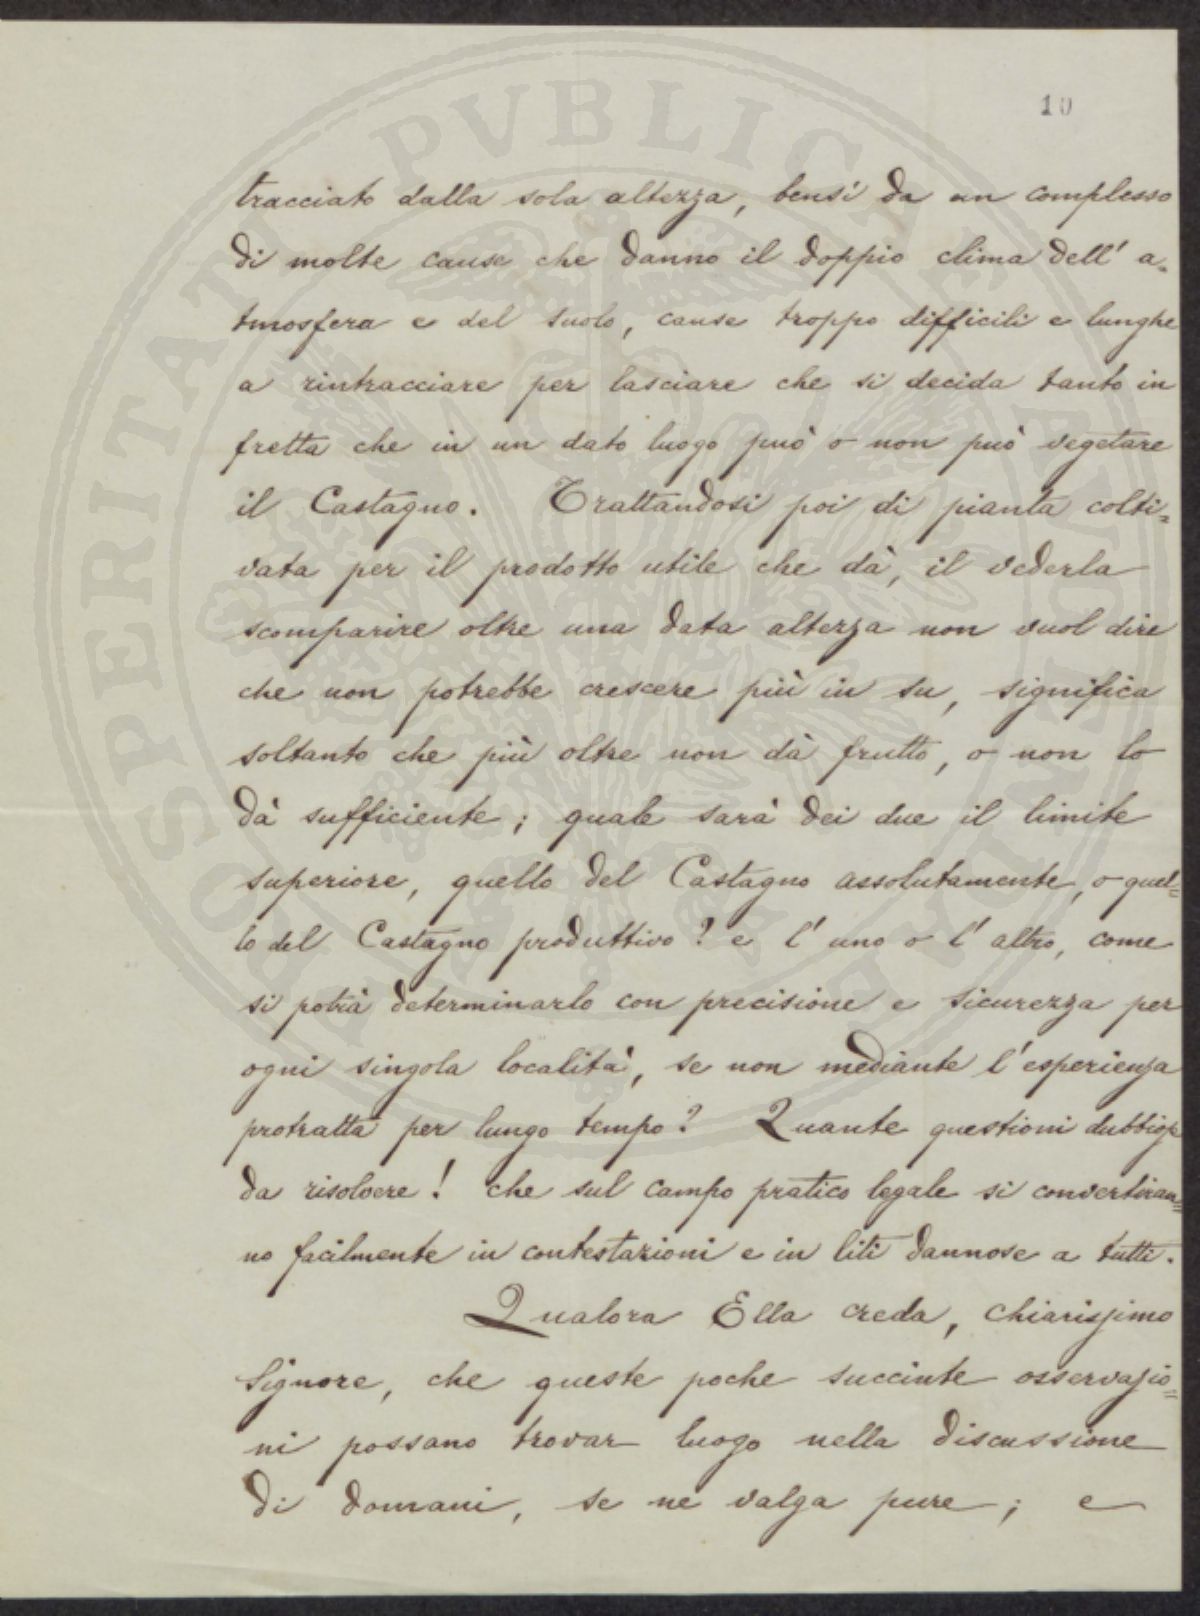 PROSPERITATI PVBLICAE AVGENDAE
10
tracciato dalla sola altezza, bensì da un complesso
di molte cause che danno il doppio clima dell' a=
tmosfera e del suolo, cause troppo difficili e lunghe
a rintracciare per lasciare che si decida tanto in
fretta che in un dato luogo può o non può vegetare
il Castagno. Trattandosi poi di pianta colti=
vata per il prodotto utile che dà, il vederla
scomparire oltre una data altezza non vuol dire
che non potrebbe crescere più in su, significa
soltanto che più oltre non dà frutto, o non lo
dà sufficiente; quale sarà dei due il limite
superiore, quello del Castagno assolutamente, o quel=
lo del Castagno produttivo? e l' uno o l' altro, come
si potrà determinarlo con precisione e sicurezza per
ogni singola località, se non mediante l' esperienza
protratta per lungo tempo? Quante questioni dubbiose
da risolvere! che sul campo pratico legale si convertiran=
no facilmente in contestazioni e in liti dannose a tutti.
Qualora Ella creda, chiarissimo
Signore, che queste poche succinte osservazio=
ni possano trovar luogo nella discussione
di domani, se ne valga pure; e